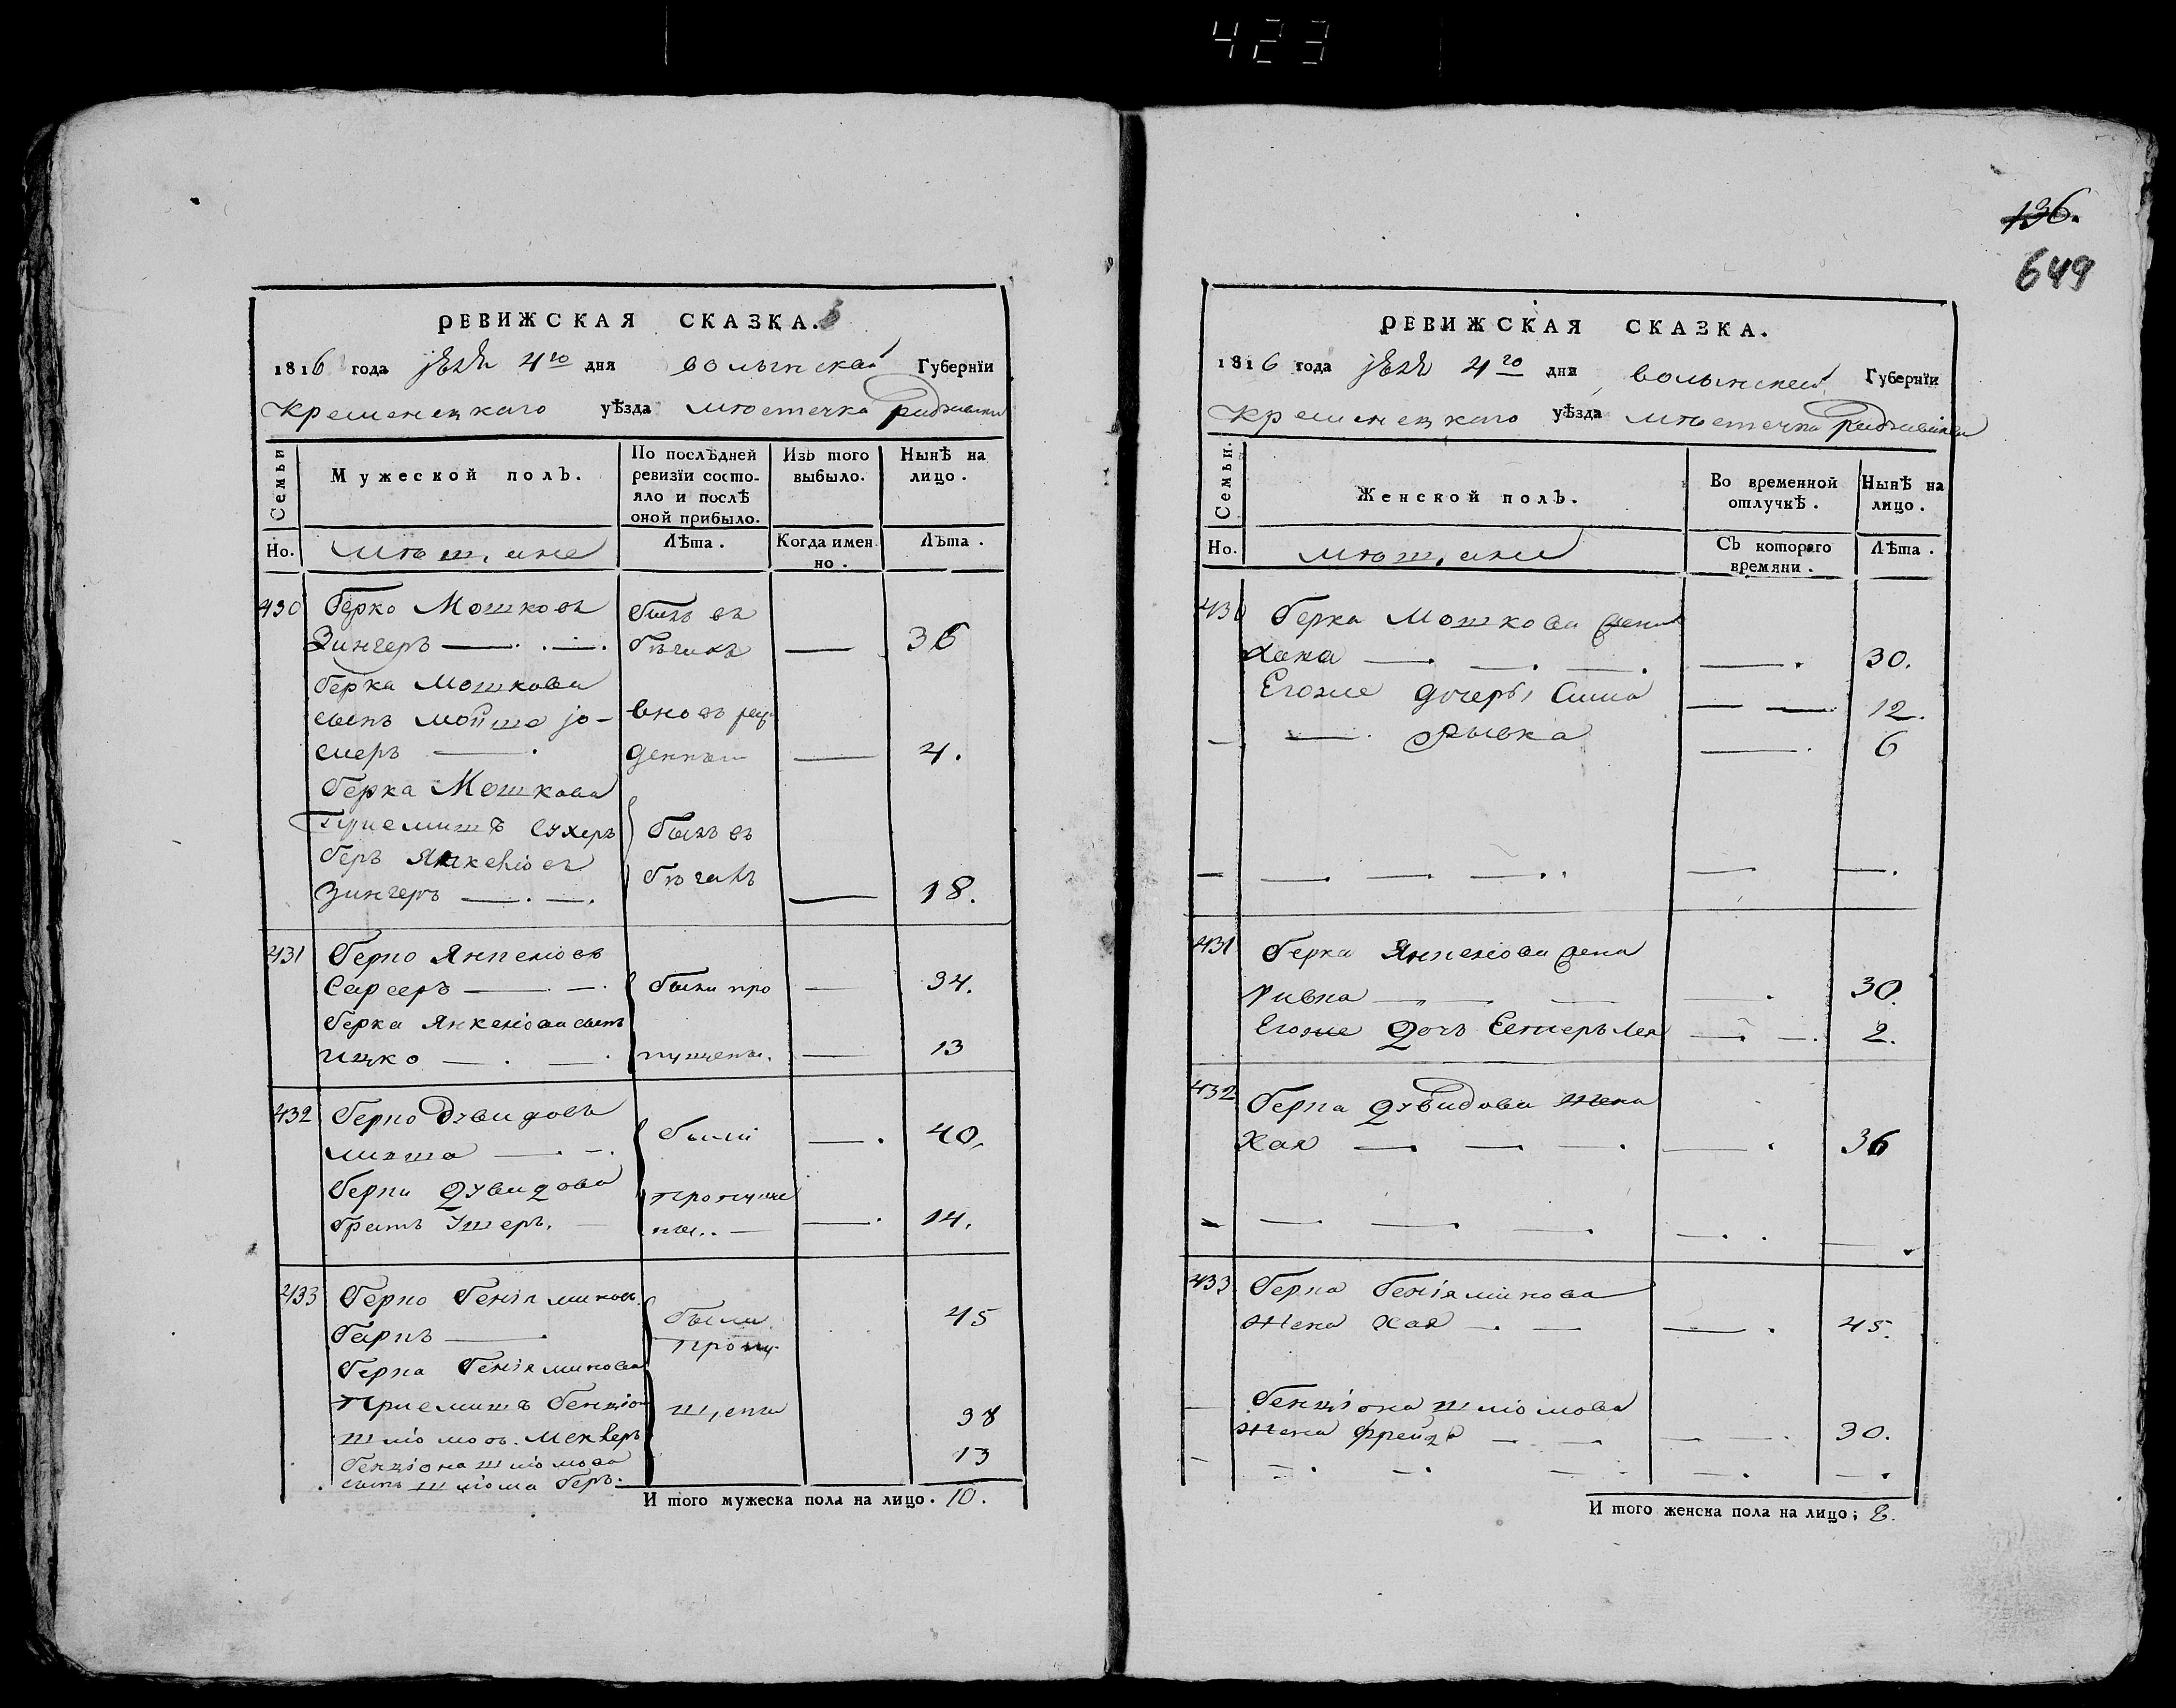 423
136.
649
РЕВИЖСКАЯ СКАЗКА.
1816 года 4го дня волынской Губернїи
Кременецкаго уѣзда мѣстечка Радзивилова
Семьи
Мужеской полъ.
По послѣдней ревизїи состояло и послѣ оной прибыло.
Изъ того выбыло.
Нынѣ на лицо.
Но.
мѣщане
Лѣта.
Когда именно.
Лѣта.
430 Берко Мошковъ былъ въ
Зингеръ — бѣгахъ — 36
Берка Мошкова
сынъ Мойше Іо- вновь рож
сиеръ — денный — 4.
Берка Мошкова
Приемишъ Сухеръ былъ въ
Беръ Янкеліовъ бѣгахъ
Зингеръ — — 18.
431 Берко Янкеліовъ
Сарверъ — были про — 34.
Берка Янкеліова сынъ
Ицко — пущены. — 13
432 Берко Дувидовъ
— были — 40.
Берка Дувидова пропуще
братъ Ушеръ. — ны. — 14.
433 Берко Беніяминовъ
Баркъ — были 45
Берка Беніяминова пропу
Приемишъ Бенціон щены 38
Шліомовъ. Меклеръ
Бенціона Шліомова 13
сынъ Шліома Беръ.
И того мужеска пола на лицо. 10.
РЕВИЖСКАЯ СКАЗКА.
1816 года 4го дня волынской Губернїи
Кременецкаго уѣзда мѣстечка Радзивилова
Семьи.
Женской полъ.
Во временной отлучкѣ.
Нынѣ на лицо.
Но.
мѣщане
Съ котораго времяни.
Лѣта.
430 Берка Мошкова жена
Хана — — 30.
Егоже дочери Сима — 12.
— Рывка — 6
431 Берка Янкеліова жена
Ривка — — 30.
Егоже дочь Естеръ Лея — 2.
432 Берка Дувидова жена
Хая — — 36
433 Берка Беніяминова
жена Хая — — 45.
— Бенціона Шліомова
жена Фрейда — — 30.
И того женска пола на лицо; 8.